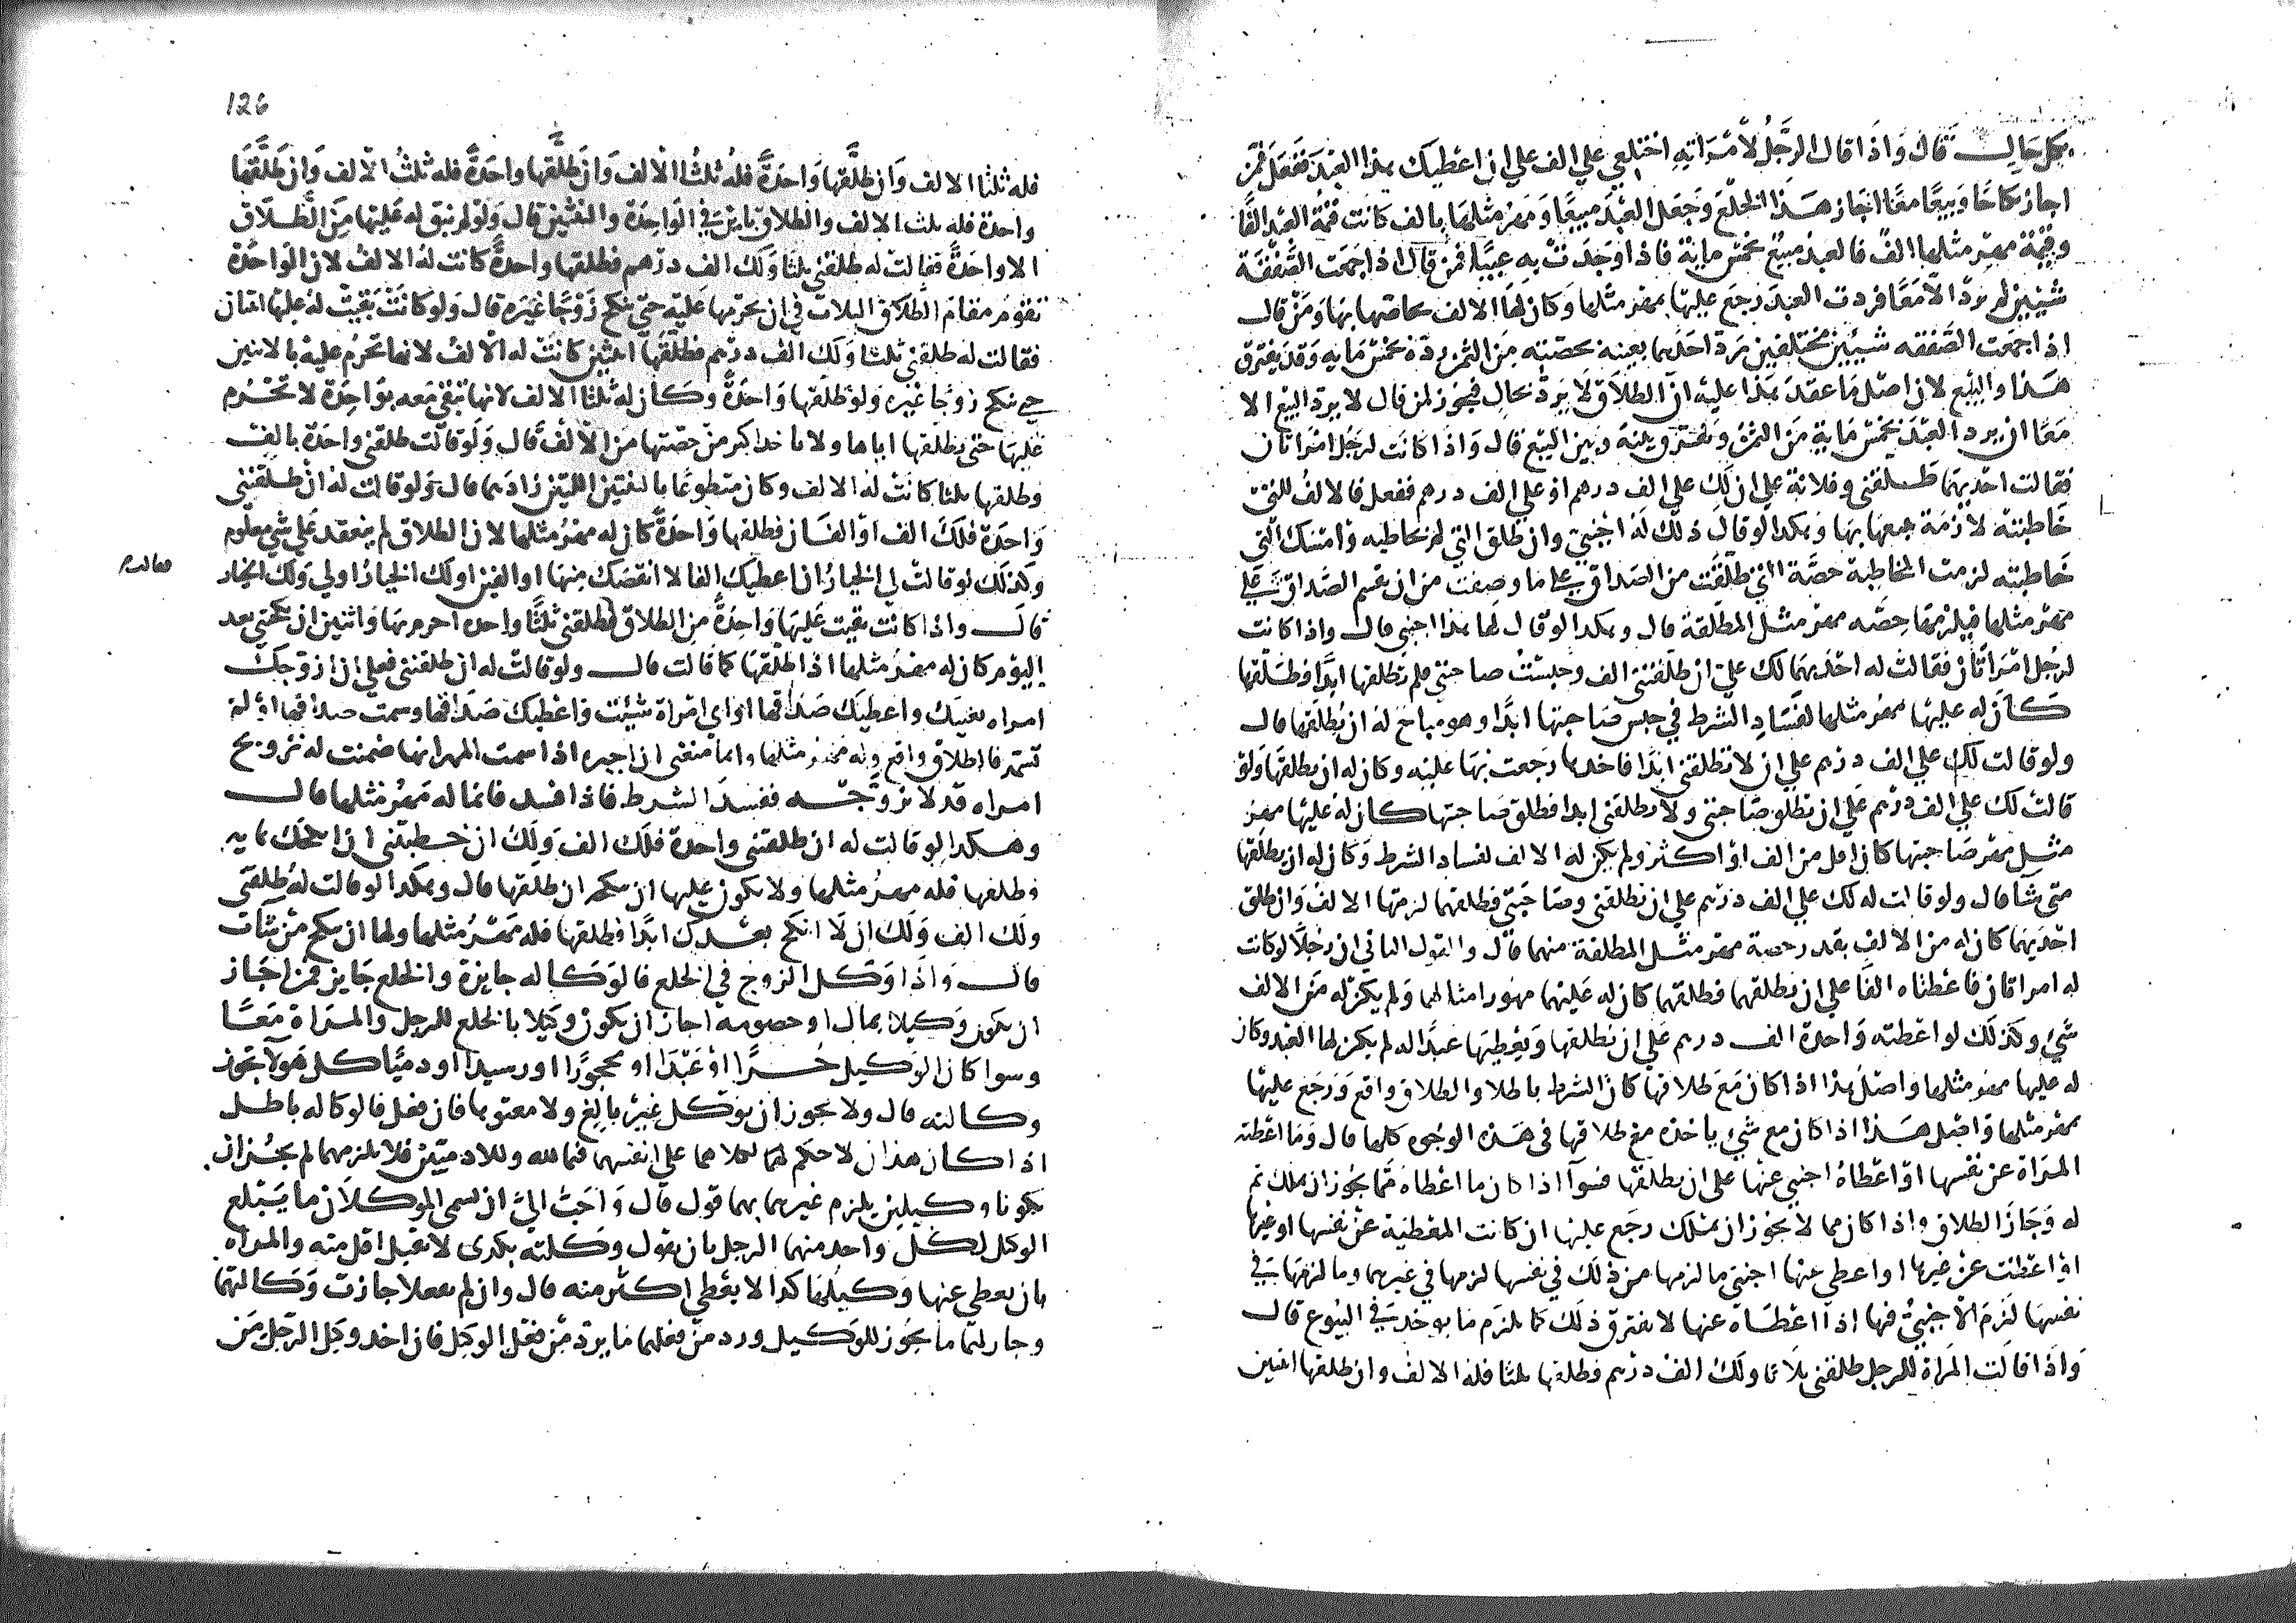 بكل حال قال واذا قال الرجل لامراته اختلعي علي الف علي ان اعطيك هذا العبد ففعل فمن
اجاز نكاحا وبيعا معا اجاز هذا الخلع وجعل العبد مبيعا ومهر مثلها بالف كانت قيمة العبد الفا
وقيمة مهر مثلها الف فالعبد مبيع بخمس ماية فاذا وجدت به عيبا فمن قال اذا جمعت الصفقة
شيئين لم يرد الا معا فردت العبد رجع عليها بمهر مثلها وكان لها الالف يحاصها بها ومن قال
اذا جمعت الصفقه شييين مختلفين مرد احدهما بعينه بحصته من الثمن رده بخمس مايه وقد يفترق
هذا والبيع لان اصل ما عقد هذا عليه ان الطلاق لا يرد بحال فيجوز لمن قال لا يرد البيع الا
معا ان يرد العبد بخمس ماية من الثمن ويفترق بينه وبين البيع قال واذا كانت لرجل امراتان
فقالت احديهما طلقني وفلانة علي ان لك علي الف درهم او علي الف درهم ففعل فالالف للتي
خاطبته لازمة جمعها بها وهكذا لو قال ذلك له اجنبي وان طلق التي لم تخاطبه وامسك التي
خاطبته لزمت المخاطبة حصة التي طلقت من الصداق علي ما وصفت من ان نقسم الصداق علي
مهر مثلها فيلزمها حصه مهر مثل المطلقة قال وهكذا لو قال لها هذا اجنبي قال واذا كانت
لرجل امراتان فقالت له احديهما لك علي ان طلقتني الف وحبست صاحبتي فلم تطلقها ابدا فطلقها
كان له عليها مهر مثلها لفساد الشرط في حبس صاحبتها ابدا وهو مباح له ان يطلقها قال
ولو قالت لك علي الف درهم علي ان لا تطلقني ابدا فاخدها رجعت بها عليه وكان له ان يطلقها ولو
قالت لك علي الف درهم علي ان تطلق صاحبتي ولا تطلقني ابدا فطلق صاحبتها كان له عليها مهر
مثل مهر صاحبتها كان اقل من الف او اكثر ولم يكن له الالف لفساد الشرط وكان له ان يطلقها
متى شا قال ولو قالت له لك علي الف درهم علي ان تطلقني وصاحبتي فطلقهما لزمتها الالف وان طلق
احديهما كان له من الالف بقدر حصة مهر مثل المطلقة منهما قال والقول الثاني ان رجلا لو كانت
له امراتان فاعطتاه الفا علي ان يطلقهما فطلقهما كان له عليهما مهور امثالهما ولم يكن له من الالف
شي وكذلك لو اعطته واحدة الف درهم علي ان تطلقها ويعطيها عبدا له لم يكن لها العبد وكان
له عليها مهر مثلها واصل هذا اذا كان مع طلاقها كان الشرط باطلا والطلاق واقع ورجع عليها
بمهر مثلها واصل هذا اذا كان مع شي ياخذه مع طلاقها في هذه الوجوه كلها قال وما اعطته
المراة عن نفسها او اعطاه اجنبي عنها على ان يطلقها فسوآ اذا كان ما اعطاه مما يجوز ان يملك تم
له وجاز الطلاق واذا كان مما لا يجوز ان يملك رجع عليها ان كانت المعطية عن نفسها او غيرها
اذا اعطت عن غيرها او اعطى عنها اجنبي ما لزمها من ذلك في نفسها لزمها في غيرها وما لزمها في
نفسها لزم الاجنبي فيها اذا اعطاه عنها لا يفترق ذلك كما يلزم ما يوخذ في البيوع قال
واذا قالت المراة للرجل طلقني ثلاثا ولك الف درهم فطلقها ثلثا فله الالف وان طلقها اثنين
126
فله ثلثا الالف وان طلقها واحدة فله ثلث الالف وان طلقها واحدة فله ثلث الالف وان طلقها
واحدة فله ثلث الالف والطلاق باين في الواحدة والثنتين قال ولو لم يبق له عليها من الطلاق
الا واحدة فقالت له طلقني ثلثا ولك الف درهم فطلقها واحدة كانت له الالف لان الواحدة
تقوم مقام الطلاق الثلاث في ان يحرمها عليه حتى تنكح زوجا غيره قال ولو كانت بقيت له عليها اثنتان
فقالت له طلقني ثلثا ولك الف درهم فطلقها اثنتين كانت له الالف لانها تحرم عليه بالاثنين
حتى تنكح زوجا غيره ولو طلقها واحدة وكان له ثلثا الالف لانها تبقي معه بواحدة لا تحرم
عليها حتى يطلقها اياها ولا ياخد اكثر من حصتها من الالف قال ولو قالت طلقني واحدة بالف
وطلقها ثلثا كانت له الالف وكان متطوعا بالثنتين اللتين زادهما قال ولو قالت له ان طلقتني
واحدة فلك الف او الفان فطلقها واحدة كان له مهر مثلها لان الطلاق لم ينعقد علي شي معلوم
وكذلك لو قالت لي الخيار ان اعطيك الفا لا انقصك منها او الفين او لك الخيار او لي ولك الخيار
قال واذا كانت بقيت عليها واحدة من الطلاق فطلقني ثلثا واحده احرم بها واثنين ان نكحتني بعد
فقالت
اليوم كان له مهر مثلها اذا طلقها كما قالت قال ولو قالت له ان طلقتني فعلي ان ازوجك
امراه بعينك واعطيك صداقها او اي امراة شيت واعطيك صداقها وسمت صداقها او لم
تسمه فالطلاق واقع وله مهر مثلها وانما منعني ان اجيزه اذا سمت المهر انها ضمنت له تزويج
امراه قد لا تزوجه ففسد الشرط فاذا فسد فانما له مهر مثلها قال
وهكدا لو قالت له ان طلقتني واحدة فلك الف ولك ان خطبتني ان انكحك بمايه
وطلقها فله مهر مثلها ولا يكون عليها ان تنكحه ان طلقها قال وهكذا لو قالت له طلقني
ولك الف ولك ان لا انكح بعدك ابدا فطلقها فله مهر مثلها ولها ان تنكح من شات
قال واذا وكل الزوج في الخلع فالوكاله جايزة والخلع جايز فمن اجاز
ان يكون وكيلا بمال او خصومه اجاز ان يكون وكيلا بالخلع للرجل والمراة معا
وسوا كان الوكيل حرا او عبدا او محجورا او رسيدا او دميا كل هولا تجوز
وكالته قال ولا يجوز ان يوكل غير بالغ ولا معتوها فان فعل فالوكاله باطل
اذا كان هذان لا حكم لهما لكلامهما علي انفسهما فيما لله وللادميين فلا يلزمهما لم يجز ان
يكونا وكيلين يلزم غيرهما بهما قول قال واحب الي ان يسمى الموكلان ما يبتلع
الوكيل لكل واحد منهما الرجل بان يقول وكلته بكدى لا يقبل اقل منه والمراه
بان يعطي عنها وكيلها كدا لا يعطي اكثر منه قال وان لم يفعلا جازت وكالتهما
وجاز لهما ما يجوز للوكيل ورد من فعلهما ما يرد من فعل الوكيل فان اخد وكيل الرجل من